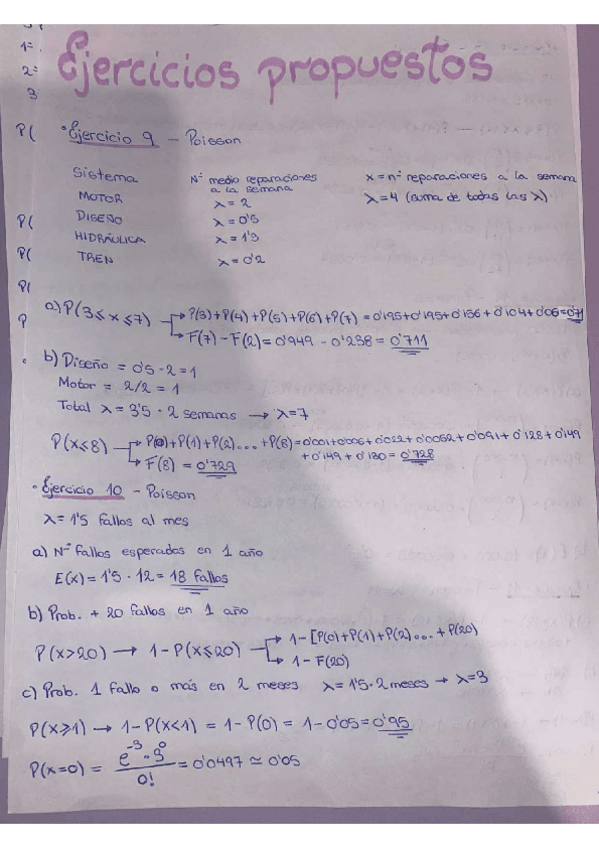 1=
2=
3
Ejercicios propuestos
P(
• Ejercicio 9 - Poisson
Sistema
MOTOR
DISEÑO
HIDRÁULICA
TREN
Nº medio reparaciones
a la semana
λ = 2
λ = 0'5
λ = 1'3
λ = 0'2
x = nº reparaciones a la semana
λ = 4 (suma de todas las λ)
P(
P(
P(
P
a) P(3 ≤ x ≤ 7) → P(3) + P(4) + P(5) + P(6) + P(7) = 0'195 + 0'195 + 0'156 + 0'104 + 0'06 = 0'71
→ F(7) - F(2) = 0'949 - 0'238 = 0'711
b) Diseño = 0'5 · 2 = 1
Motor = 2/2 = 1
Total λ = 3'5 · 2 semanas → λ = 7
P(x ≤ 8) → P(0) + P(1) + P(2) ... + P(8) = 0'001 + 0'006 + 0'022 + 0'0052 + 0'091 + 0'128 + 0'149
+ 0'149 + 0'130 = 0'728
→ F(8) = 0'729
• Ejercicio 10 - Poisson
λ = 1'5 fallos al mes
a) Nº fallos esperados en 1 año
E(x) = 1'5 · 12 = 18 fallos
b) Prob. + 20 fallos en 1 año
P(x > 20) → 1 - P(x ≤ 20) → 1 - [P(0) + P(1) + P(2) ... + P(20)
→ 1 - F(20)
c) Prob. 1 fallo o más en 2 meses λ = 1'5 · 2 meses → λ = 3
P(x ≥ 1) → 1 - P(x < 1) = 1 - P(0) = 1 - 0'05 = 0'95
P(x = 0) = e^-3 · 3^0 / 0! = 0'0497 ≃ 0'05